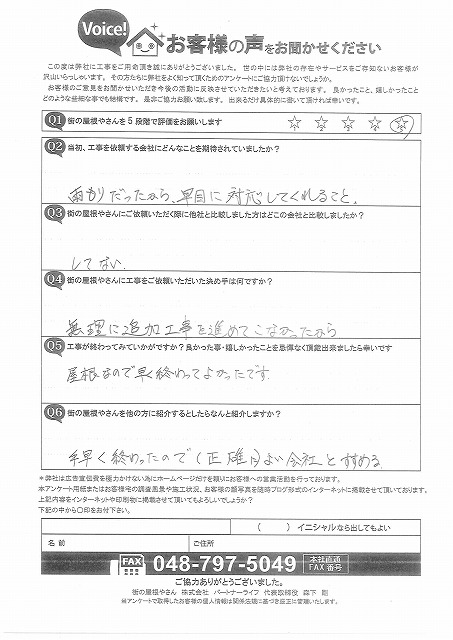 Voice!
お客様の声をお聞かせください
この度は弊社に工事をご用命頂き誠にありがとうございました。 世の中には弊社の存在やサービスをご存知ないお客様が
沢山いらっしゃいます。 その方たちに弊社をよく知って頂くためのアンケートにご協力頂けないでしょうか。
お客様のご意見をお聞かせいただき今後の活動に反映させていただきたいと考えております。 良かったこと、嬉しかったこと
どのような些細な事でも結構です。 是非ご協力お願い致します。 出来るだけ具体的に書いて頂ければ幸いです。
Q1 街の屋根やさんを5段階で評価をお願いします ☆ ☆ ☆ ☆ ☆
Q2 当初、工事を依頼する会社にどんなことを期待されていましたか?
雨もりだったから、早目に対応してくれること。
Q3 街の屋根やさんにご依頼いただく際に他社と比較しました方はどこの会社と比較しましたか?
してない.
Q4 街の屋根やさんに工事をご依頼いただいた決め手は何ですか?
無理に追加工事を進めてこなかったから
Q5 工事が終わってみていかがですか?良かった事・嬉しかったことを忌憚なく頂戴出来ましたら幸いです
屋根なので早く終わってよかったです.
Q6 街の屋根やさんを他の方に紹介するとしたらなんと紹介しますか?
手早く終わったので(正確)よい会社とすすめる.
*弊社は広告宣伝費を極力かけない為にホームページだけを頼りにお客様への営業活動を行っております。
本アンケート用紙またはお客様宅の調査風景や施工状況、お客様の顔写真を随時ブログ形式のインターネットに掲載させて頂いております。
上記内容をインターネットや印刷物に掲載させて頂いてもよろしいでしょうか?
下記の中から〇印をお付下さい。
( ) イニシャルなら出してもよい
名前 ご住所
FAX 048-797-5049 本社直通 FAX番号
ご協力ありがとうございました。
街の屋根やさん 株式会社 パートナーライフ 代表取締役 森下 剛
※アンケートで取得したお客様の個人情報は関係法規に基づき厳正に管理いたします。